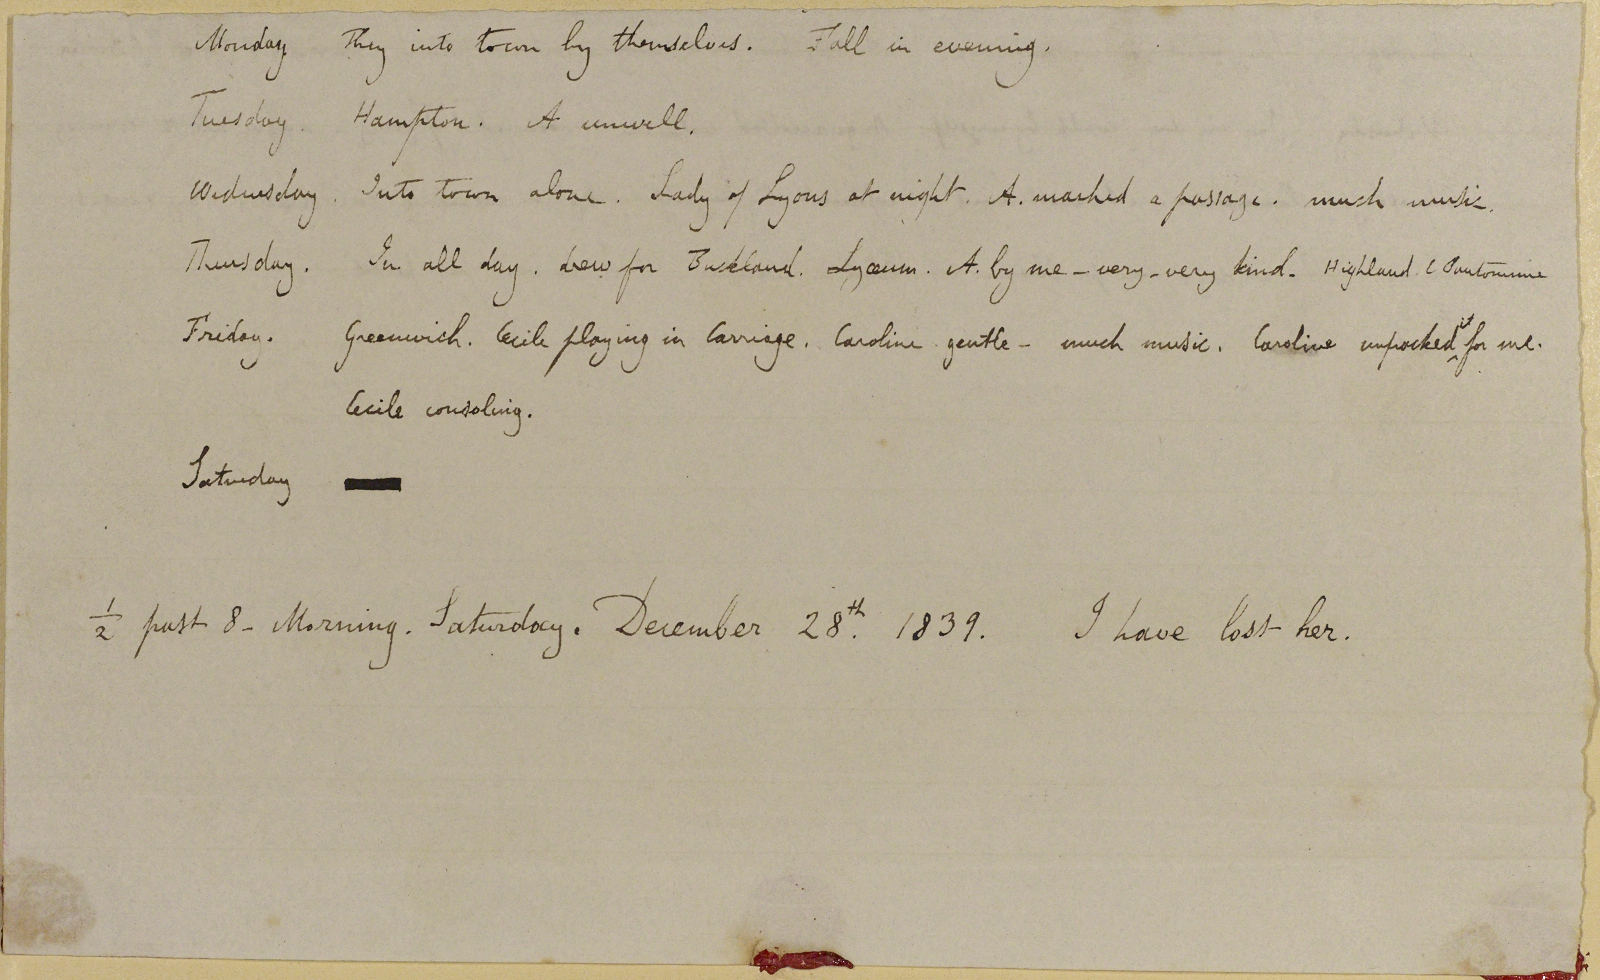 Monday They into town by themselves. Fall in evening.
Tuesday. Hampton. A unwell.
Wednesday. Into town alone. Lady of Lyons at night. A. marked a passage. much music.
Thursday. In all day. drew for Buckland. Lyceum. A. by me - very - very kind. Highland C Pantomime
Friday. Greenwich. Cecile playing in Carriage. Caroline gentle - much music. Caroline unpacked it for me.
Cecile consoling.
Saturday
½ past 8 - Morning. Saturday. December 28th. 1839. I have lost her.